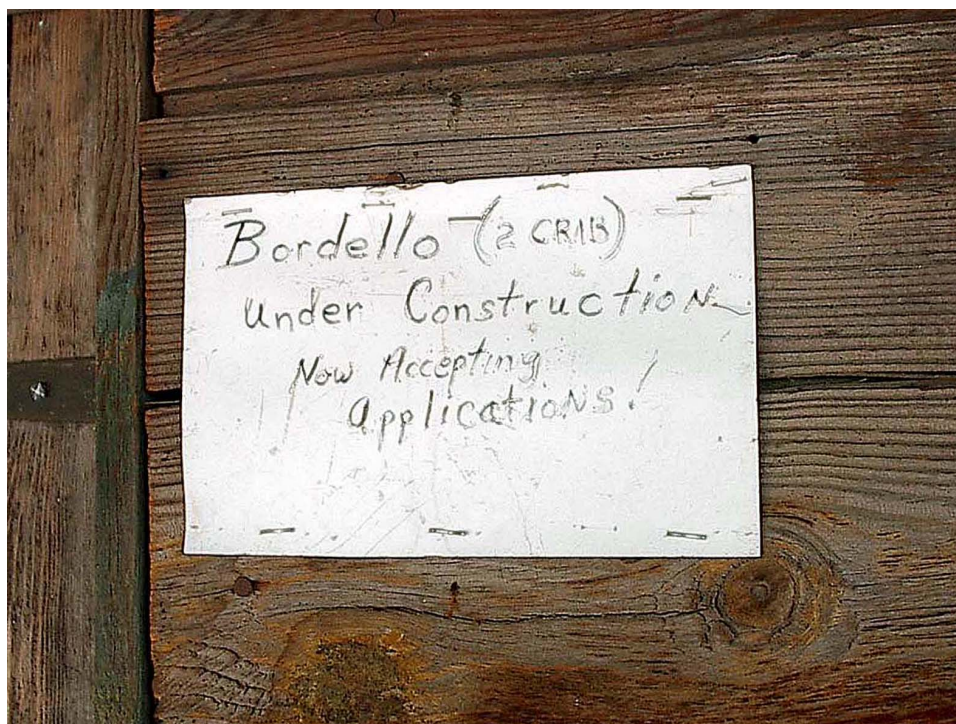 Bordello (2 CRIB)
Under Construction
Now Accepting
Applications!